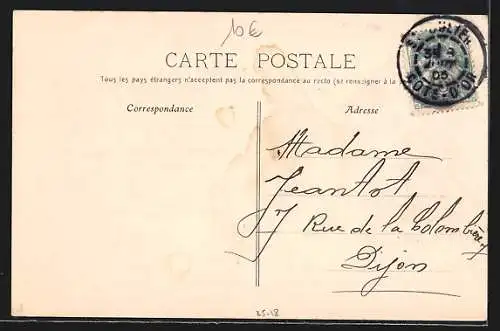 10€
CARTE POSTALE
Tous les pays étrangers n'acceptent pas la correspondance au recto (se renseigner à la
Correspondance
Adresse
CÔTE-D'OR
05
Madame
Jeantot
7 Rue de la Colombière
Dijon
25-18